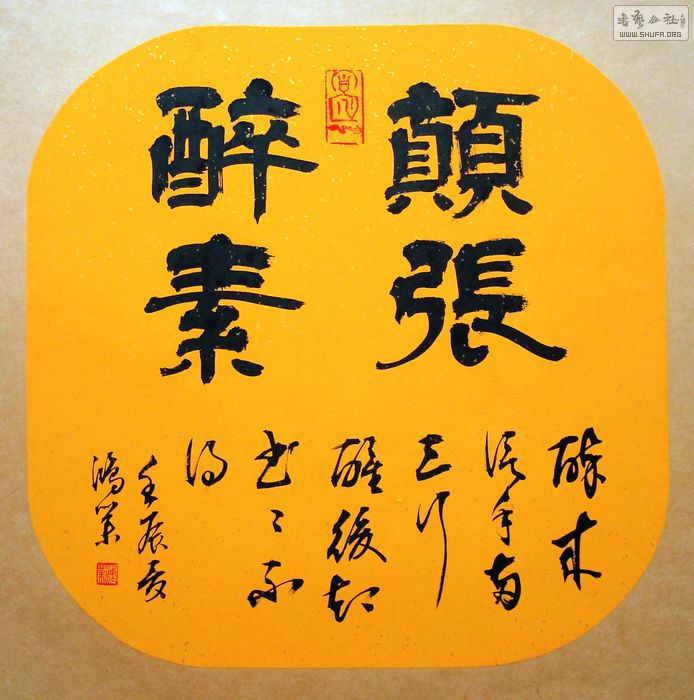 顛張
醉素
醉來
信手兩
三行
醒後却
书〻不
得
壬辰夏
鴻業
书艺公社
WWW.SHUFA.ORG